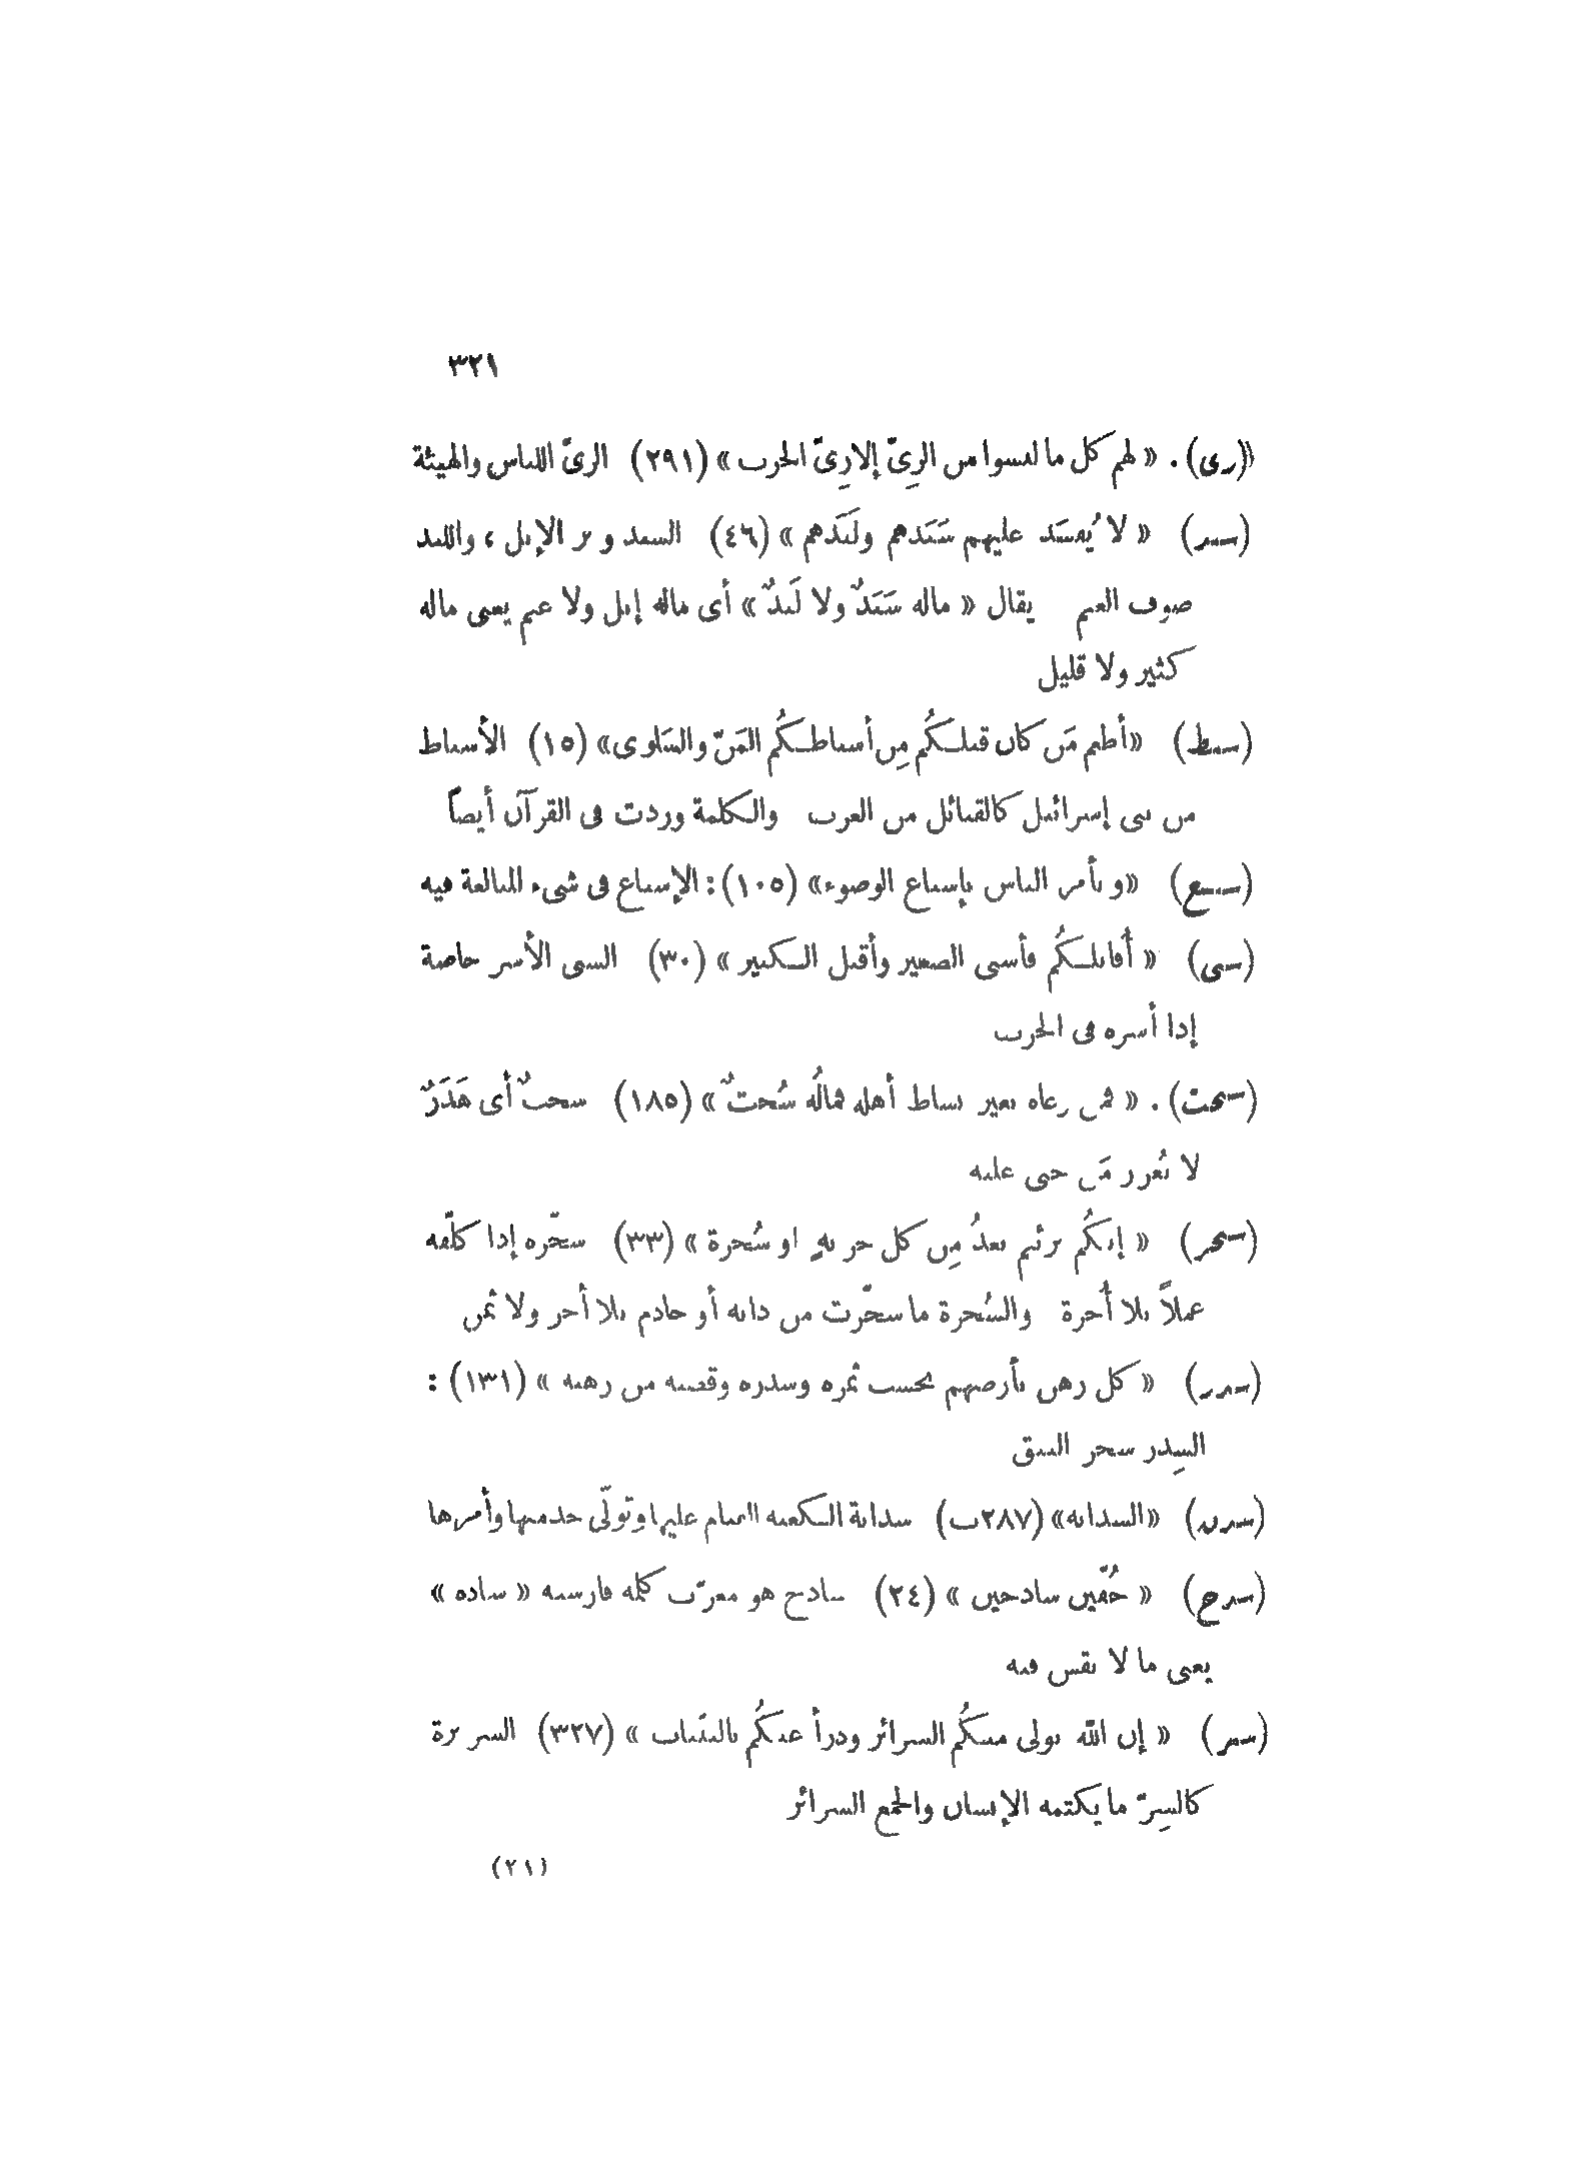 ٣٢١
(زى). « لهم كل ما لبسوا من الزِىّ إلا زِىّ الحرب » (٢٩١) الزىّ اللباس والهيئة
(سبد) « لا يُؤخَذ عليهم سَبَدهم ولَبَدهم » (٤٦) السبد وبر الإبل ، واللبد
صوف الغنم يقال « ماله سَبَدٌ ولا لَبدٌ » أى ماله إبل ولا غنم يعنى ماله
كثير ولا قليل
(سبط) «أطعم مَن كان قبلكُم مِن أسباطكُم المَنّ والسَلوى» (١٥) الأسباط
من بنى إسرائيل كالقبائل من العرب والكلمة وردت فى القرآن أيضاً
(سبغ) «و يأمر الناس بإسباغ الوضوء» (١٠٥): الإسباغ فى شىء المبالغة فيه
(سبى) « أُقاتلكُم فأسبى الصغير وأقتل الكبير » (٣٠) السبى الأسر خاصة
إذا أسره فى الحرب
(سحت). « فمن رعاه بغير بساط أهله فمالُه سُحتٌ » (١٨٥) سحتٌ أى هَدَرٌ
لا يُعزر مَن جنى عليه
(سخر) « إنكُم برئتم بعدُ مِن كل جزيةٍ او سُخرة » (٣٣) سخّره إذا كلّفه
عملاً بلا أُجرة والسُخرة ما سخّرت من دابه أو خادم بلا أجر ولا ثمن
(سدر) « كل رهن بأرضهم يحسب ثمره وسدره وقضبه من رهنه » (١٣١) :
السِدر شجر النبق
(سدن) «السدانه» (٢٨٧ب) سدانة الكعبه القيام عليها وتولّى خدمتها وأمرها
(سذج) « خُفّين ساذجين » (٢٤) ساذج هو معرّب كلمه فارسيه « ساده »
يعنى ما لا نقش فيه
(سر) « إن الله تولى منكُم السرائر ودرأ عنكُم بالبيّنات » (٣٢٧) السريرة
كالسِرّ ما يكتمه الإنسان والجمع السرائر
(٢١)